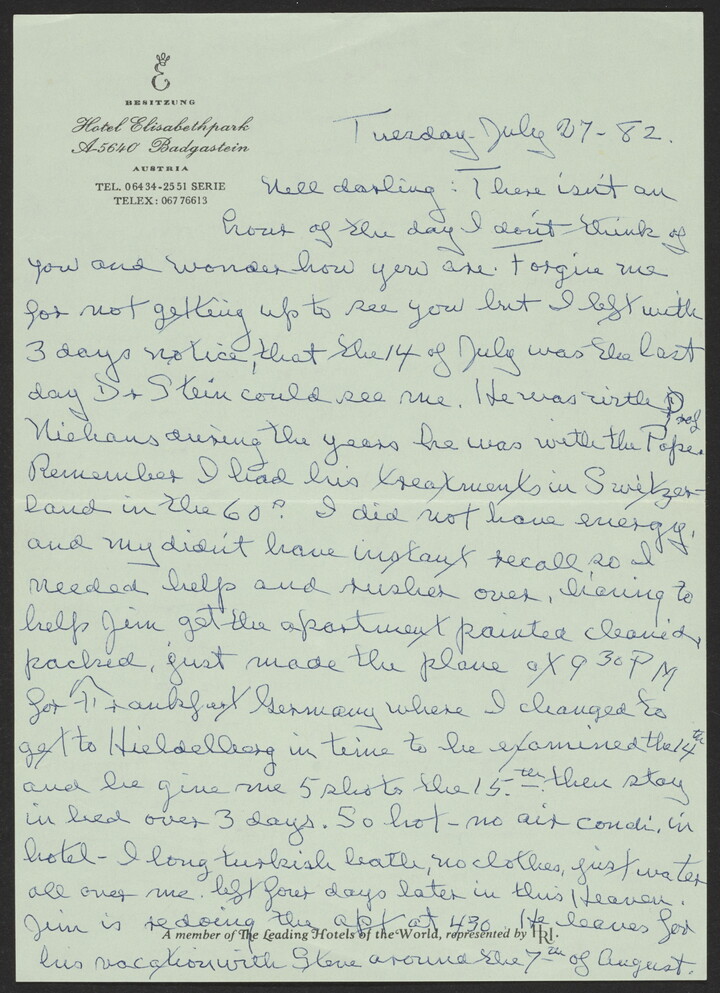 BESITZUNG
Hotel Elisabethpark
A-5640 Badgastein
AUSTRIA
TEL. 06434-2551 SERIE
TELEX: 06776613
Tuesday - July 27 - 82.
Nell darling: There isn't an
hour of the day I don't think of
you and wonder how you are. Forgive me
for not getting up to see you but I left with
3 days notice, that the 14 of July was the last
day Dr Stein could see me. He was with Prof
Niehans during the years he was with the Pope.
Remember I had his treatments in Switzer-
land in the 60? I did not have energy,
and my didn't have instant recall, so I
needed help and rusher over, having to
help Jim get the apartment painted cleaned,
packed, just made the plane at 9 30 P M
for Frankfurt Germany where I changed to
get to Hieldelberg in time to be examined the 14th
and he give me 5 shots the 15th then stay
in bed over 3 days. So hot - no air condi. in
hotel - I long turkish bath, no clothes, just water
all over me. left four days later in this Heaven.
Jim is redoing the apt at 490 He leaves for
A member of The Leading Hotels of the World, represented by HRI.
his vacation with Steve around the 7th of August.